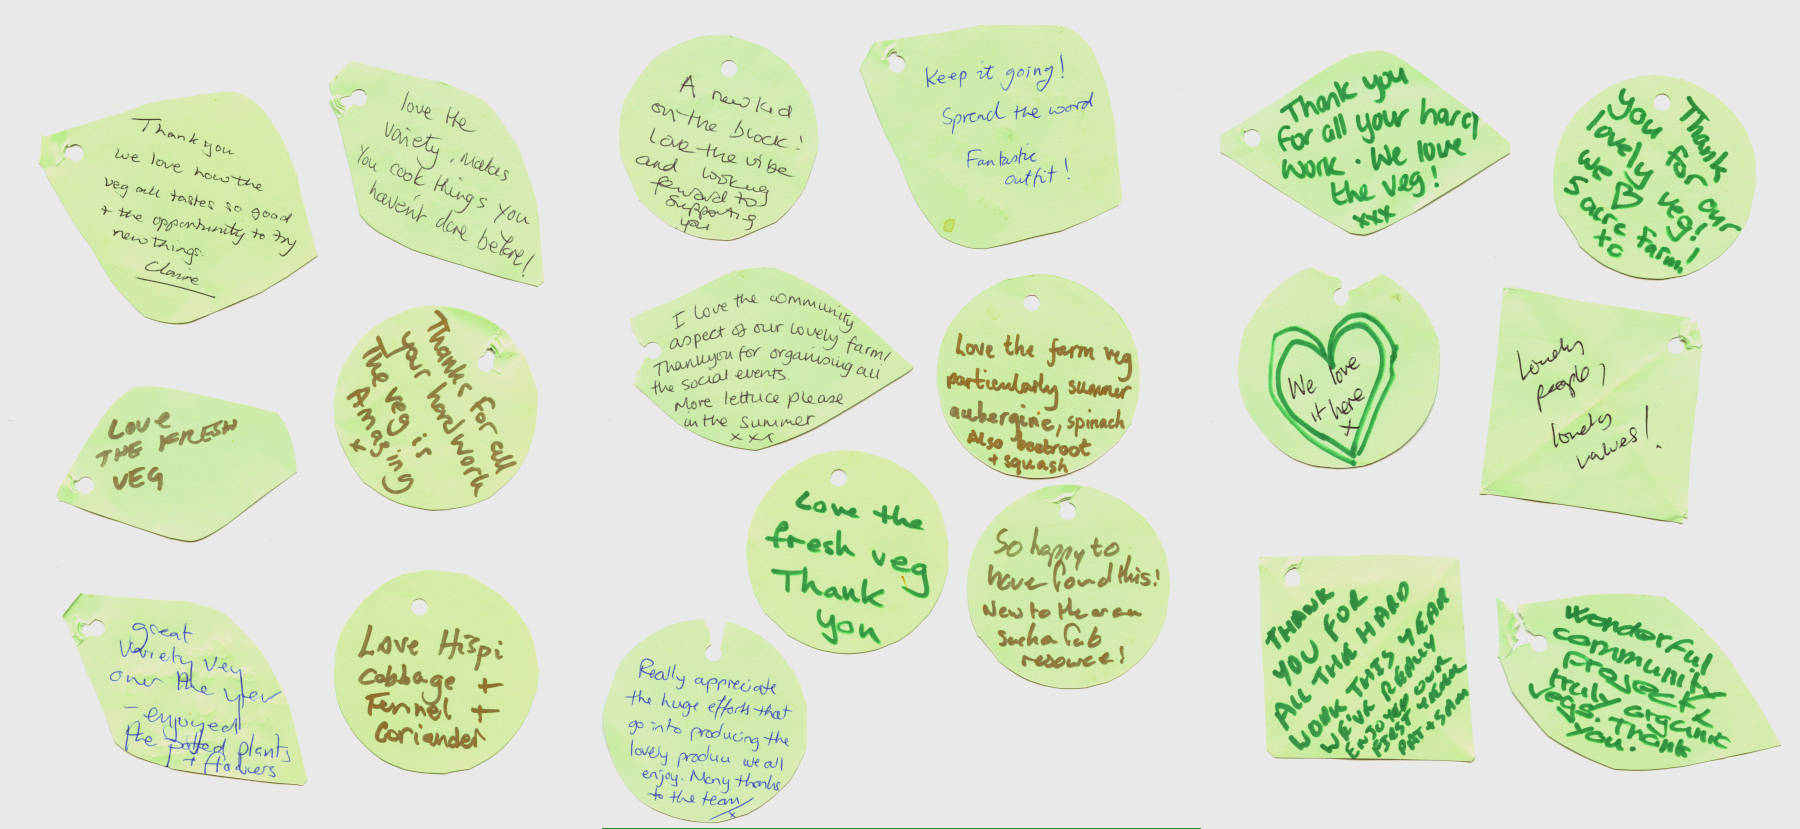 Thank you
we love how the
veg all tastes so good
+ the opportunity to try
new things.
Claire
love the
variety, makes
you cook things you
haven't done before!
LOVE
THE FRESH
VEG
Thanks for all
your hard work
The veg is
Amazing
x
great
Variety Veg
over the year
- enjoyed
the potted plants
+ flowers
Love Hispi
Cabbage +
Fennel +
Coriander
A new kid
on the block!
Love the vibe
and looking
forward to
supporting
you
Keep it going!
Spread the word
Fantastic
outfit!
I love the community
aspect of our lovely farm!
Thankyou for organising all
the social events.
More lettuce please
in the summer
xxx
Love the farm veg
particularly summer
aubergine, spinach
Also beetroot
+ squash
Love the
fresh veg
Thank
you
So happy to
have found this!
New to the area
such a fab
resource!
Really appreciate
the huge efforts that
go into producing the
lovely produce we all
enjoy. Many thanks
to the team
x
Thank you
for all your hard
work. We love
the veg!
xxx
Thank
you for our
lovely veg!
we ♡
5 acre farm!
We love
it here
x
Lovely
people,
lovely
values!
THANK
YOU FOR
ALL THE HARD
WORK THIS YEAR
WE'VE REALLY
ENJOYED OUR
FIRST YEAR
PAT + SAM
Wonderful
community
project
truly organic
vegs. Thank
you.